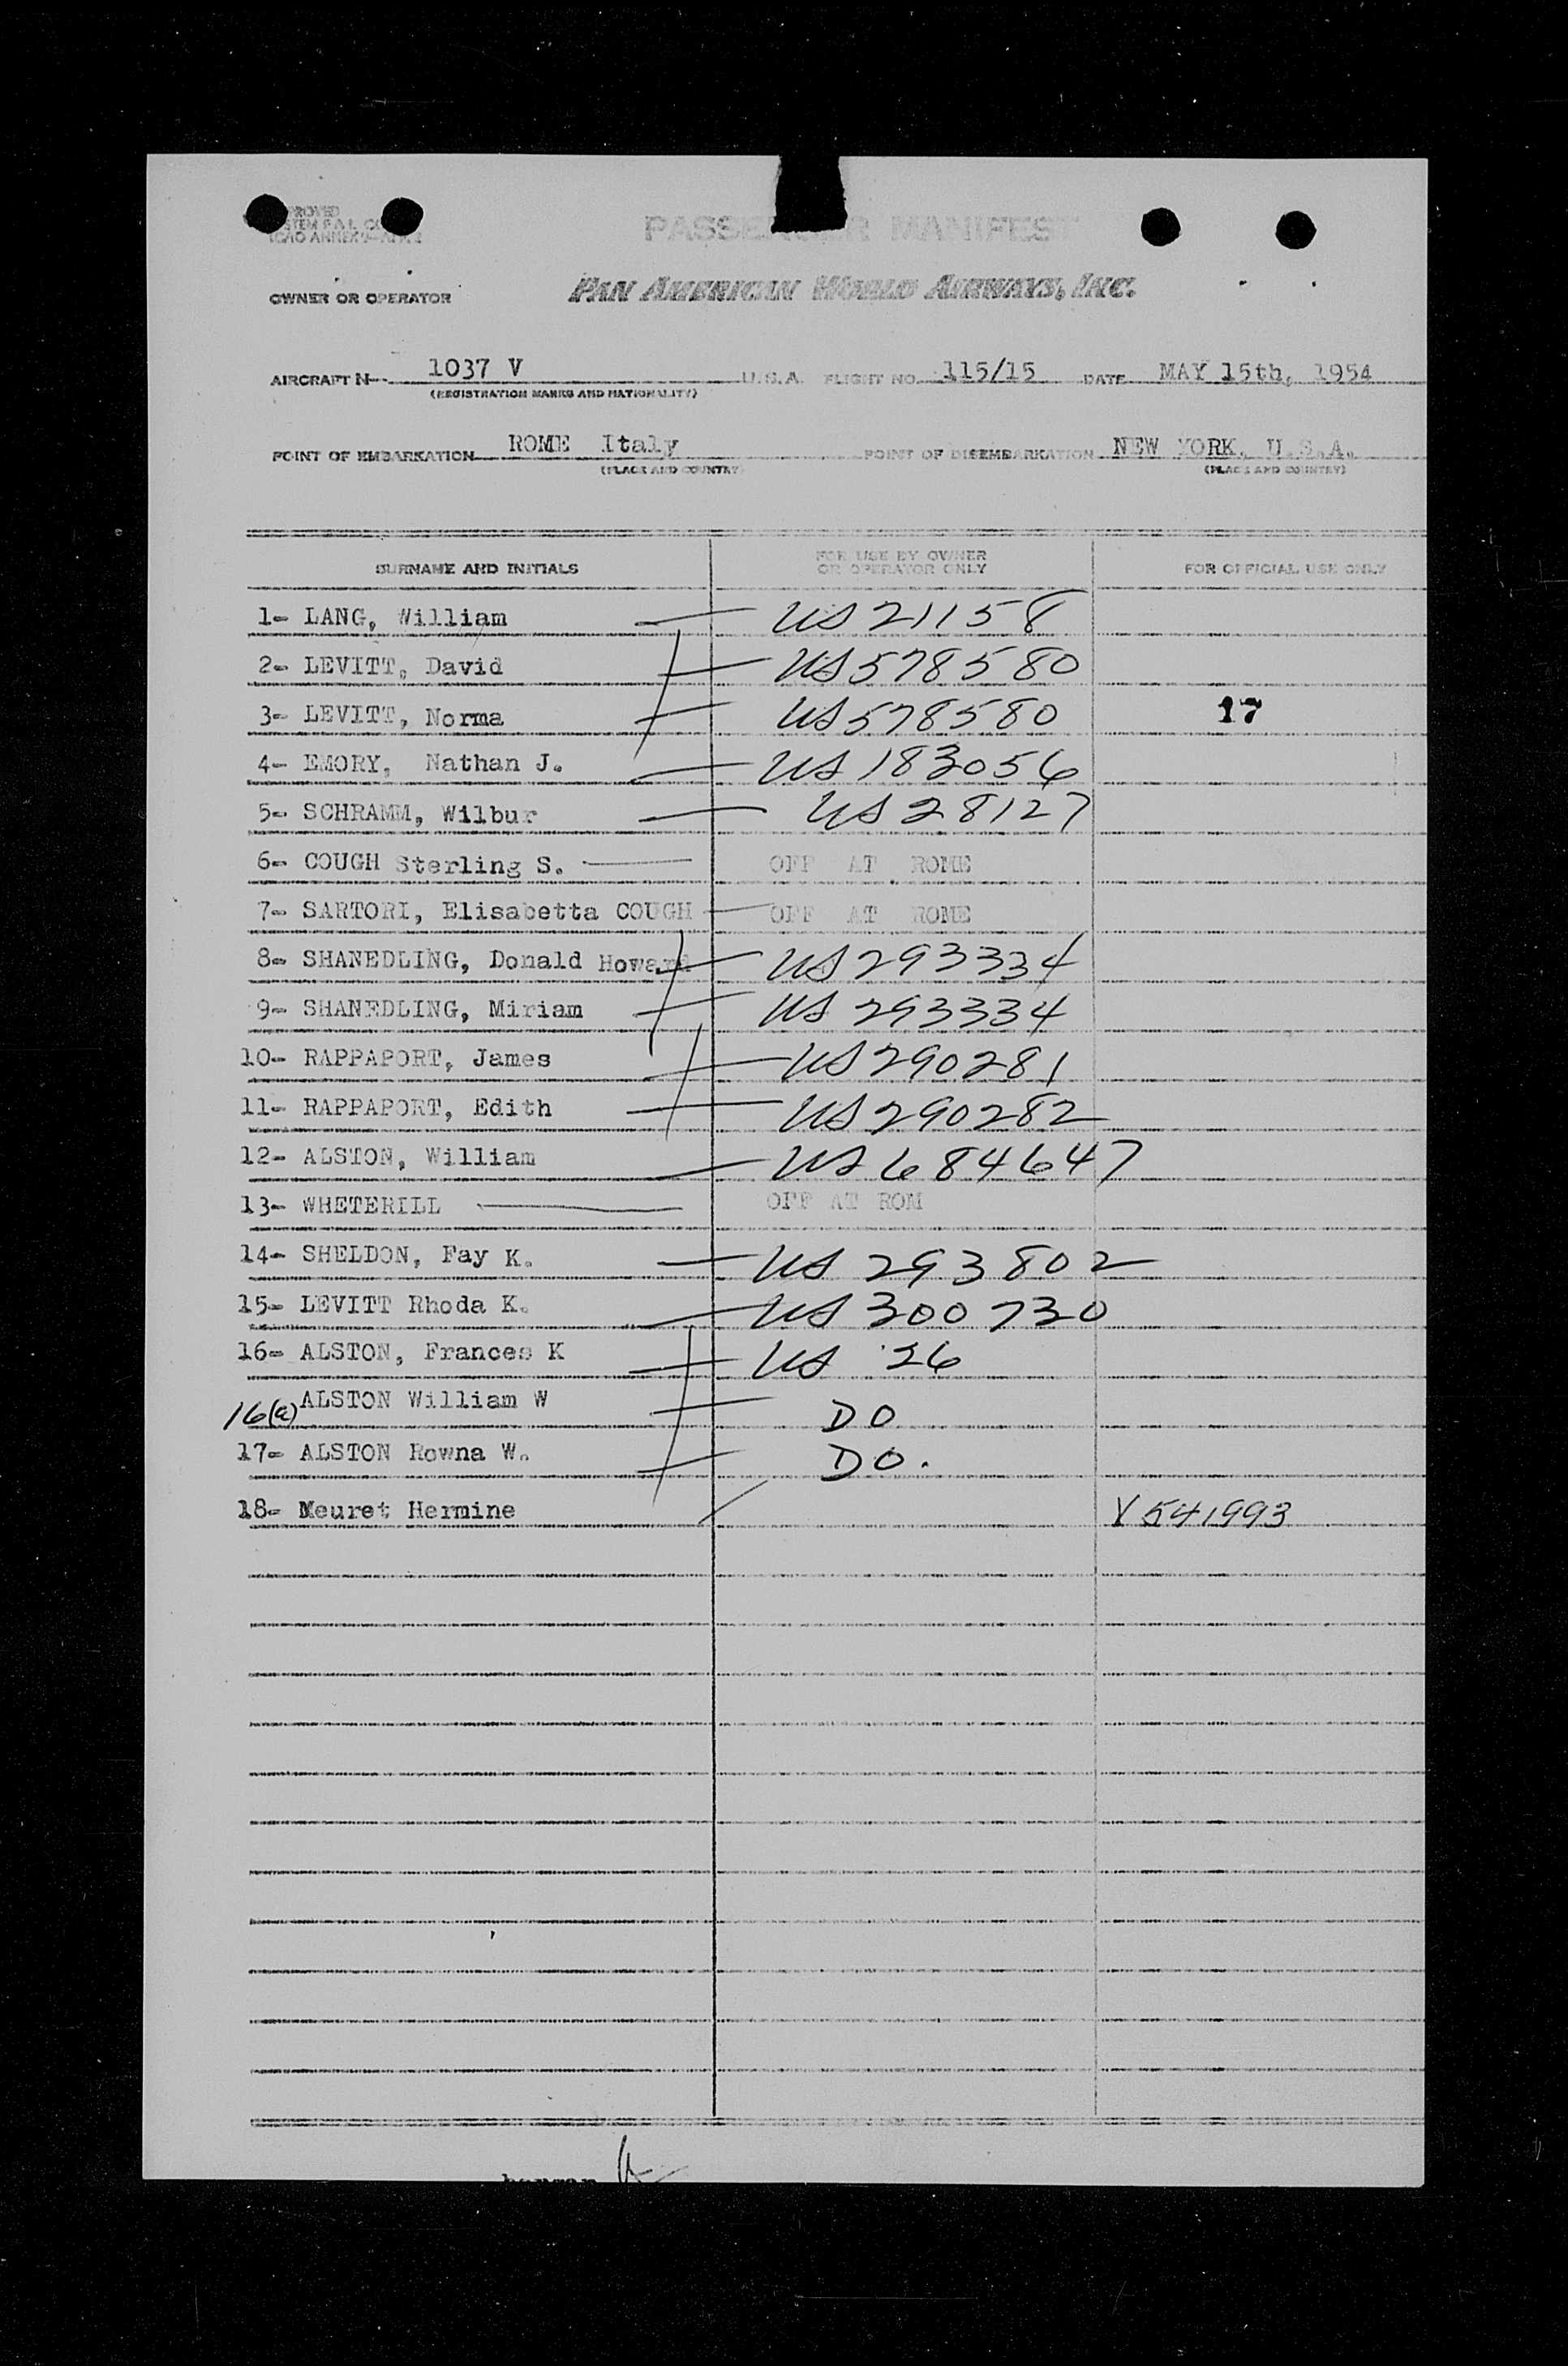 PASSENGER MANIFEST
OWNER OR OPERATOR PAN AMERICAN WORLD AIRWAYS, INC.
AIRCRAFT N- 1037 V U.S.A. FLIGHT NO. 115/15 DATE MAY 15th, 1954
(REGISTRATION MARKS AND NATIONALITY)
POINT OF EMBARKATION ROME Italy POINT OF DISEMBARKATION NEW YORK, U.S.A.
(PLACE AND COUNTRY) (PLACE AND COUNTRY)
SURNAME AND INITIALS FOR USE BY OWNER OR OPERATOR ONLY FOR OFFICIAL USE ONLY
1- LANG, William US 21158
2- LEVITT, David US 578580
3- LEVITT, Norma US 578580 17
4- EMORY, Nathan J. US 183056
5- SCHRAMM, Wilbur US 28127
6- COUGH Sterling S. OFF AT ROME
7- SARTORI, Elisabetta COUGH OFF AT ROME
8- SHANEDLING, Donald Howard US 293334
9- SHANEDLING, Miriam US 293334
10- RAPPAPORT, James US 290281
11- RAPPAPORT, Edith US 290282
12- ALSTON, William US 684647
13- WHETERILL OFF AT ROM
14- SHELDON, Fay K. US 293802
15- LEVITT Rhoda K. US 300730
16- ALSTON, Frances K US 26
16(a) ALSTON William W DO
17- ALSTON Rowna W. DO.
18- Meuret Hermine V 541993